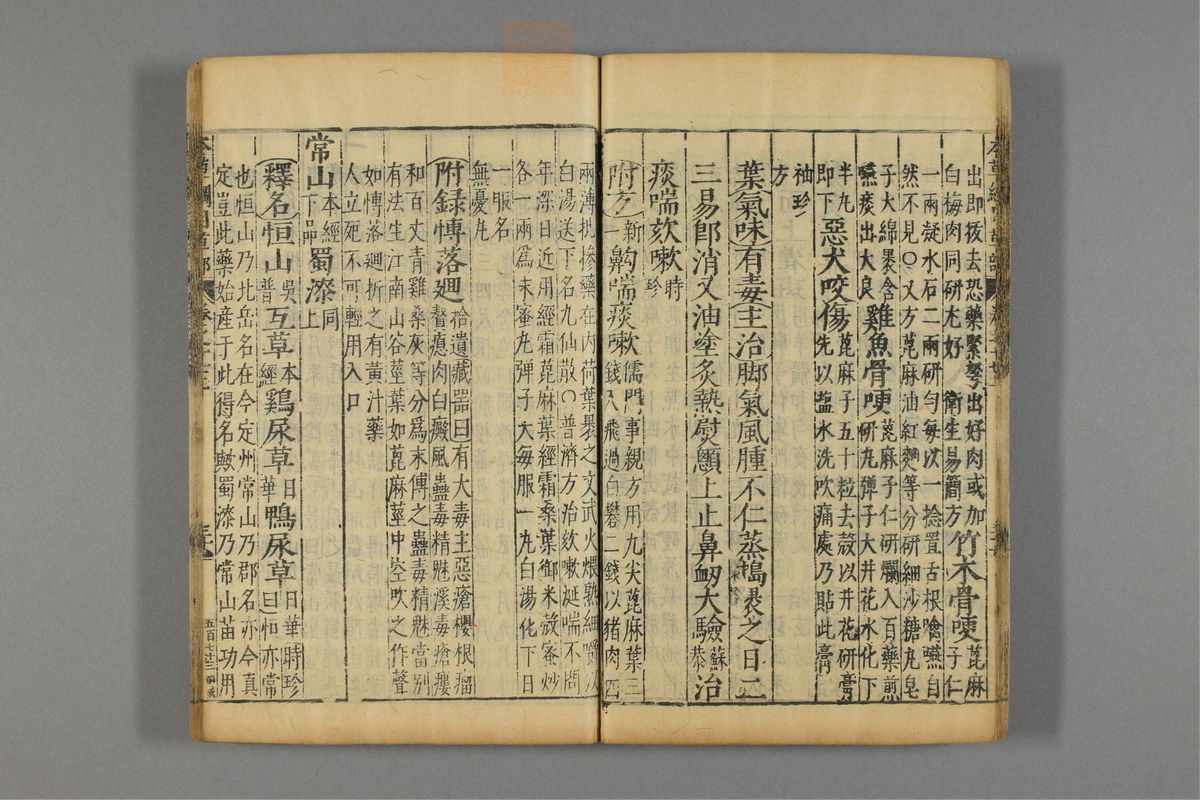 出即拨去恐藥緊弩出好肉或加
白梅肉同研尤好衞生易簡方竹木骨哽蓖麻
子仁
一兩凝水石二兩研勻每以一捻置舌根噙嚥自
然不見○又方蓖麻油紅麴等分研細沙糖丸皂
子大綿褁含
嚥痰出大良雞魚骨哽蓖麻子仁研爛入百藥煎
研丸彈子大井花水化下
半丸
即下惡犬咬傷蓖麻子五十粒去殼以井花研膏
先以塩水洗吹痛處乃貼此膏
袖珍
方
葉氣味有毒主治脚氣風腫不仁蒸搗褁之日二
三易即消又油塗炙熱熨顖上止鼻衂大驗蘇恭治
痰喘欬嗽時珍
附方新一齁喘痰嗽儒門事親方用九尖蓖麻葉三
錢入飛過白礬二錢以猪肉四
兩薄批摻藥在內荷葉裹之文武火煨熟細嚼以
白湯送下名九仙散○普濟方治欬嗽涎喘不問
年深日近用經霜蓖麻葉經霜桑葉御米殼蜜炒
各一兩爲末蜜丸彈子大每服一丸白湯化下日
一服名
無憂丸
附錄慱落廻拾遺藏器曰有大毒主惡瘡癭根瘤
贅瘜肉白癜風蠱毒精魅溪毒瘡瘻
和百丈青雞桑灰等分爲末傅之蠱毒精魅當别
有法生江南山谷莖葉如蓖麻莖中空吹之作聲
如慱落廻折之有黃汁藥
人立死不可輕用入口
常山本經下品蜀漆同上
釋名恒山吳普互草本經鷄尿草日華鴨尿草日華時珍
曰恒亦常
也恒山乃北岳名在今定州常山乃郡名亦今真
定豈此藥始産于此得名歟蜀漆乃常山苗功用